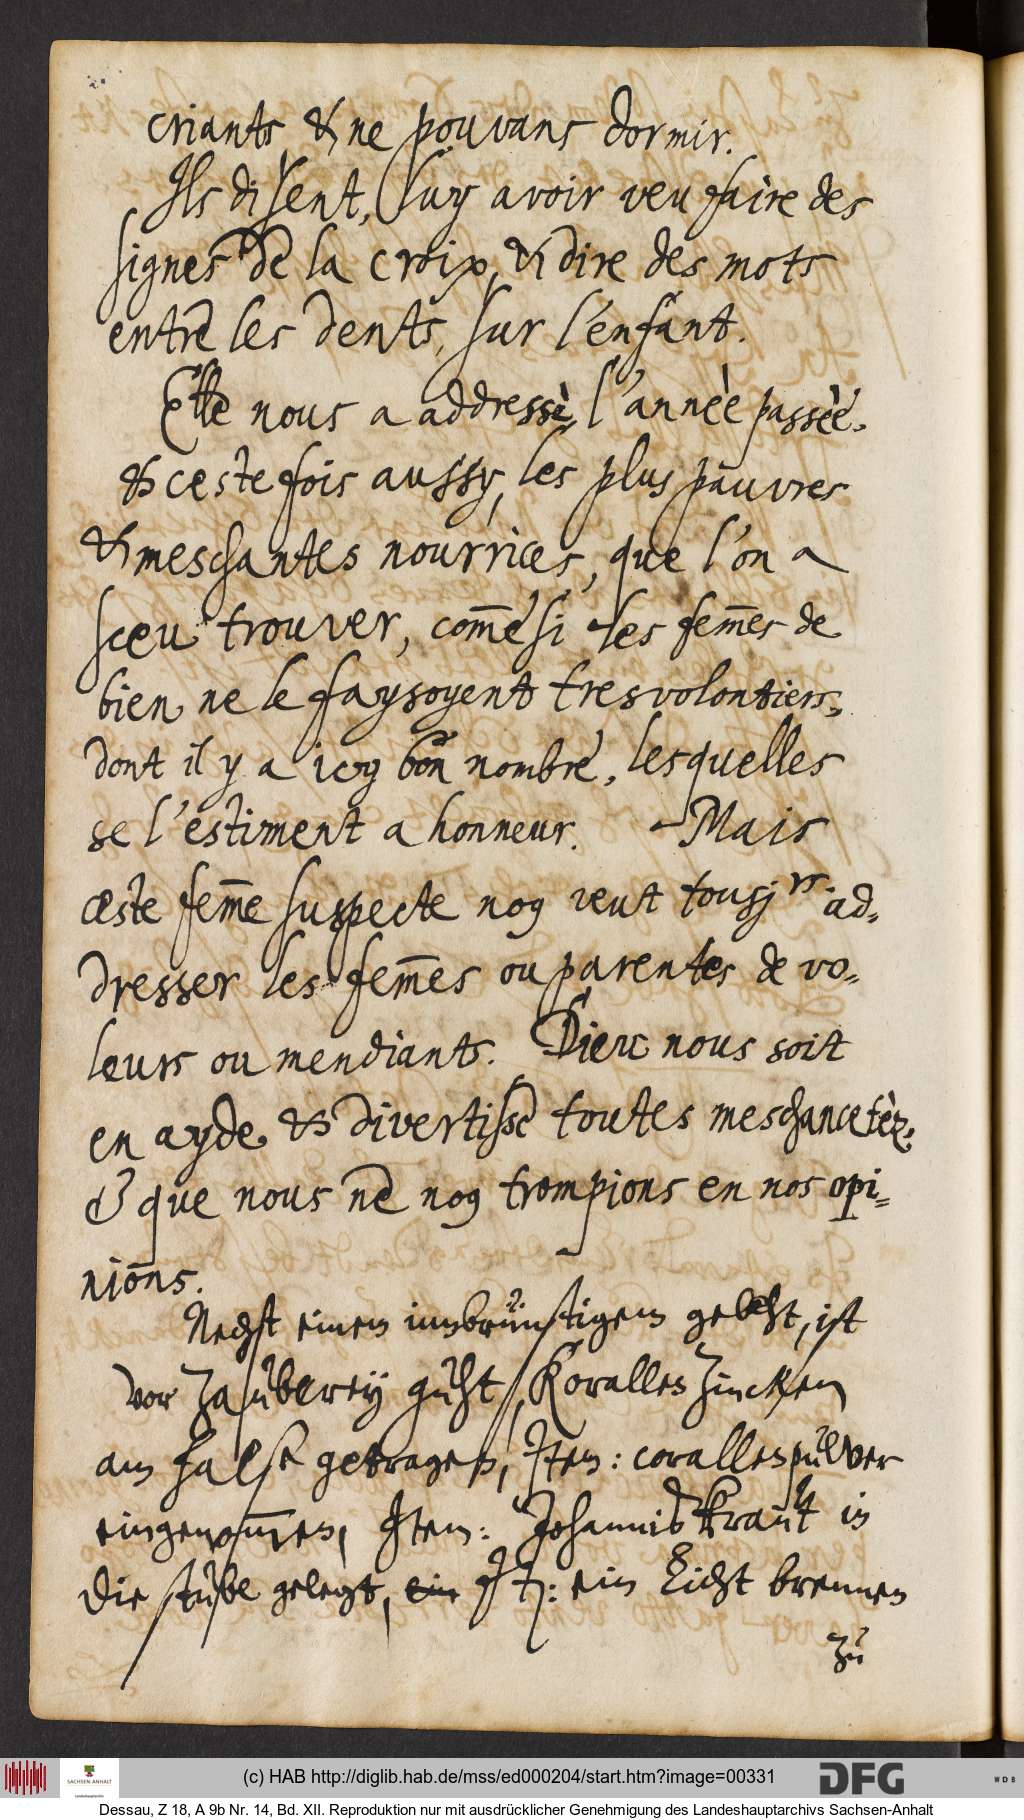 criants, & ne pouvans dormir.
Ils disent, luy avoir veu faire des
signes de la croix, & dire des mots
entre les dents, sur l'enfant.
Elle nous a addressè, l'annèe passèe,
& ceste fois aussy, les plus pauvres
& meschantes nourrices, que l'on a
sceu trouver, com̄e si les fem̄es de
bien ne le faysoyent tresvolontiers,
dont il y a icy bon nombre, lesquelles
se l'estiment a honneur. Mais
ceste fem̄e suspecte no9 veut tousjrs ad-
dresser les fem̄es ou parentes de vo-
leurs ou mendiants. Dieu nous soit
en ayde, & divertisse toutes meschancetèz,
& que nous ne no9 trompions en nos opi-
nions.
Nechst einem innbrünstigem gebeht, ist
vor Zauberey guht, Korallen Zincken
am halse getragen, Item: corallenpulver
eingenom̄en, Item: Johannis Kraut in
die stube gelegt, ein It: ein Licht brennen
zu
(c) HAB http://diglib.hab.de/mss/ed000204/start.htm?image=00331
SACHSEN-ANHALT
DFG
WDB
Dessau, Z 18, A 9b Nr. 14, Bd. XII. Reproduktion nur mit ausdrücklicher Genehmigung des Landeshauptarchivs Sachsen-Anhalt